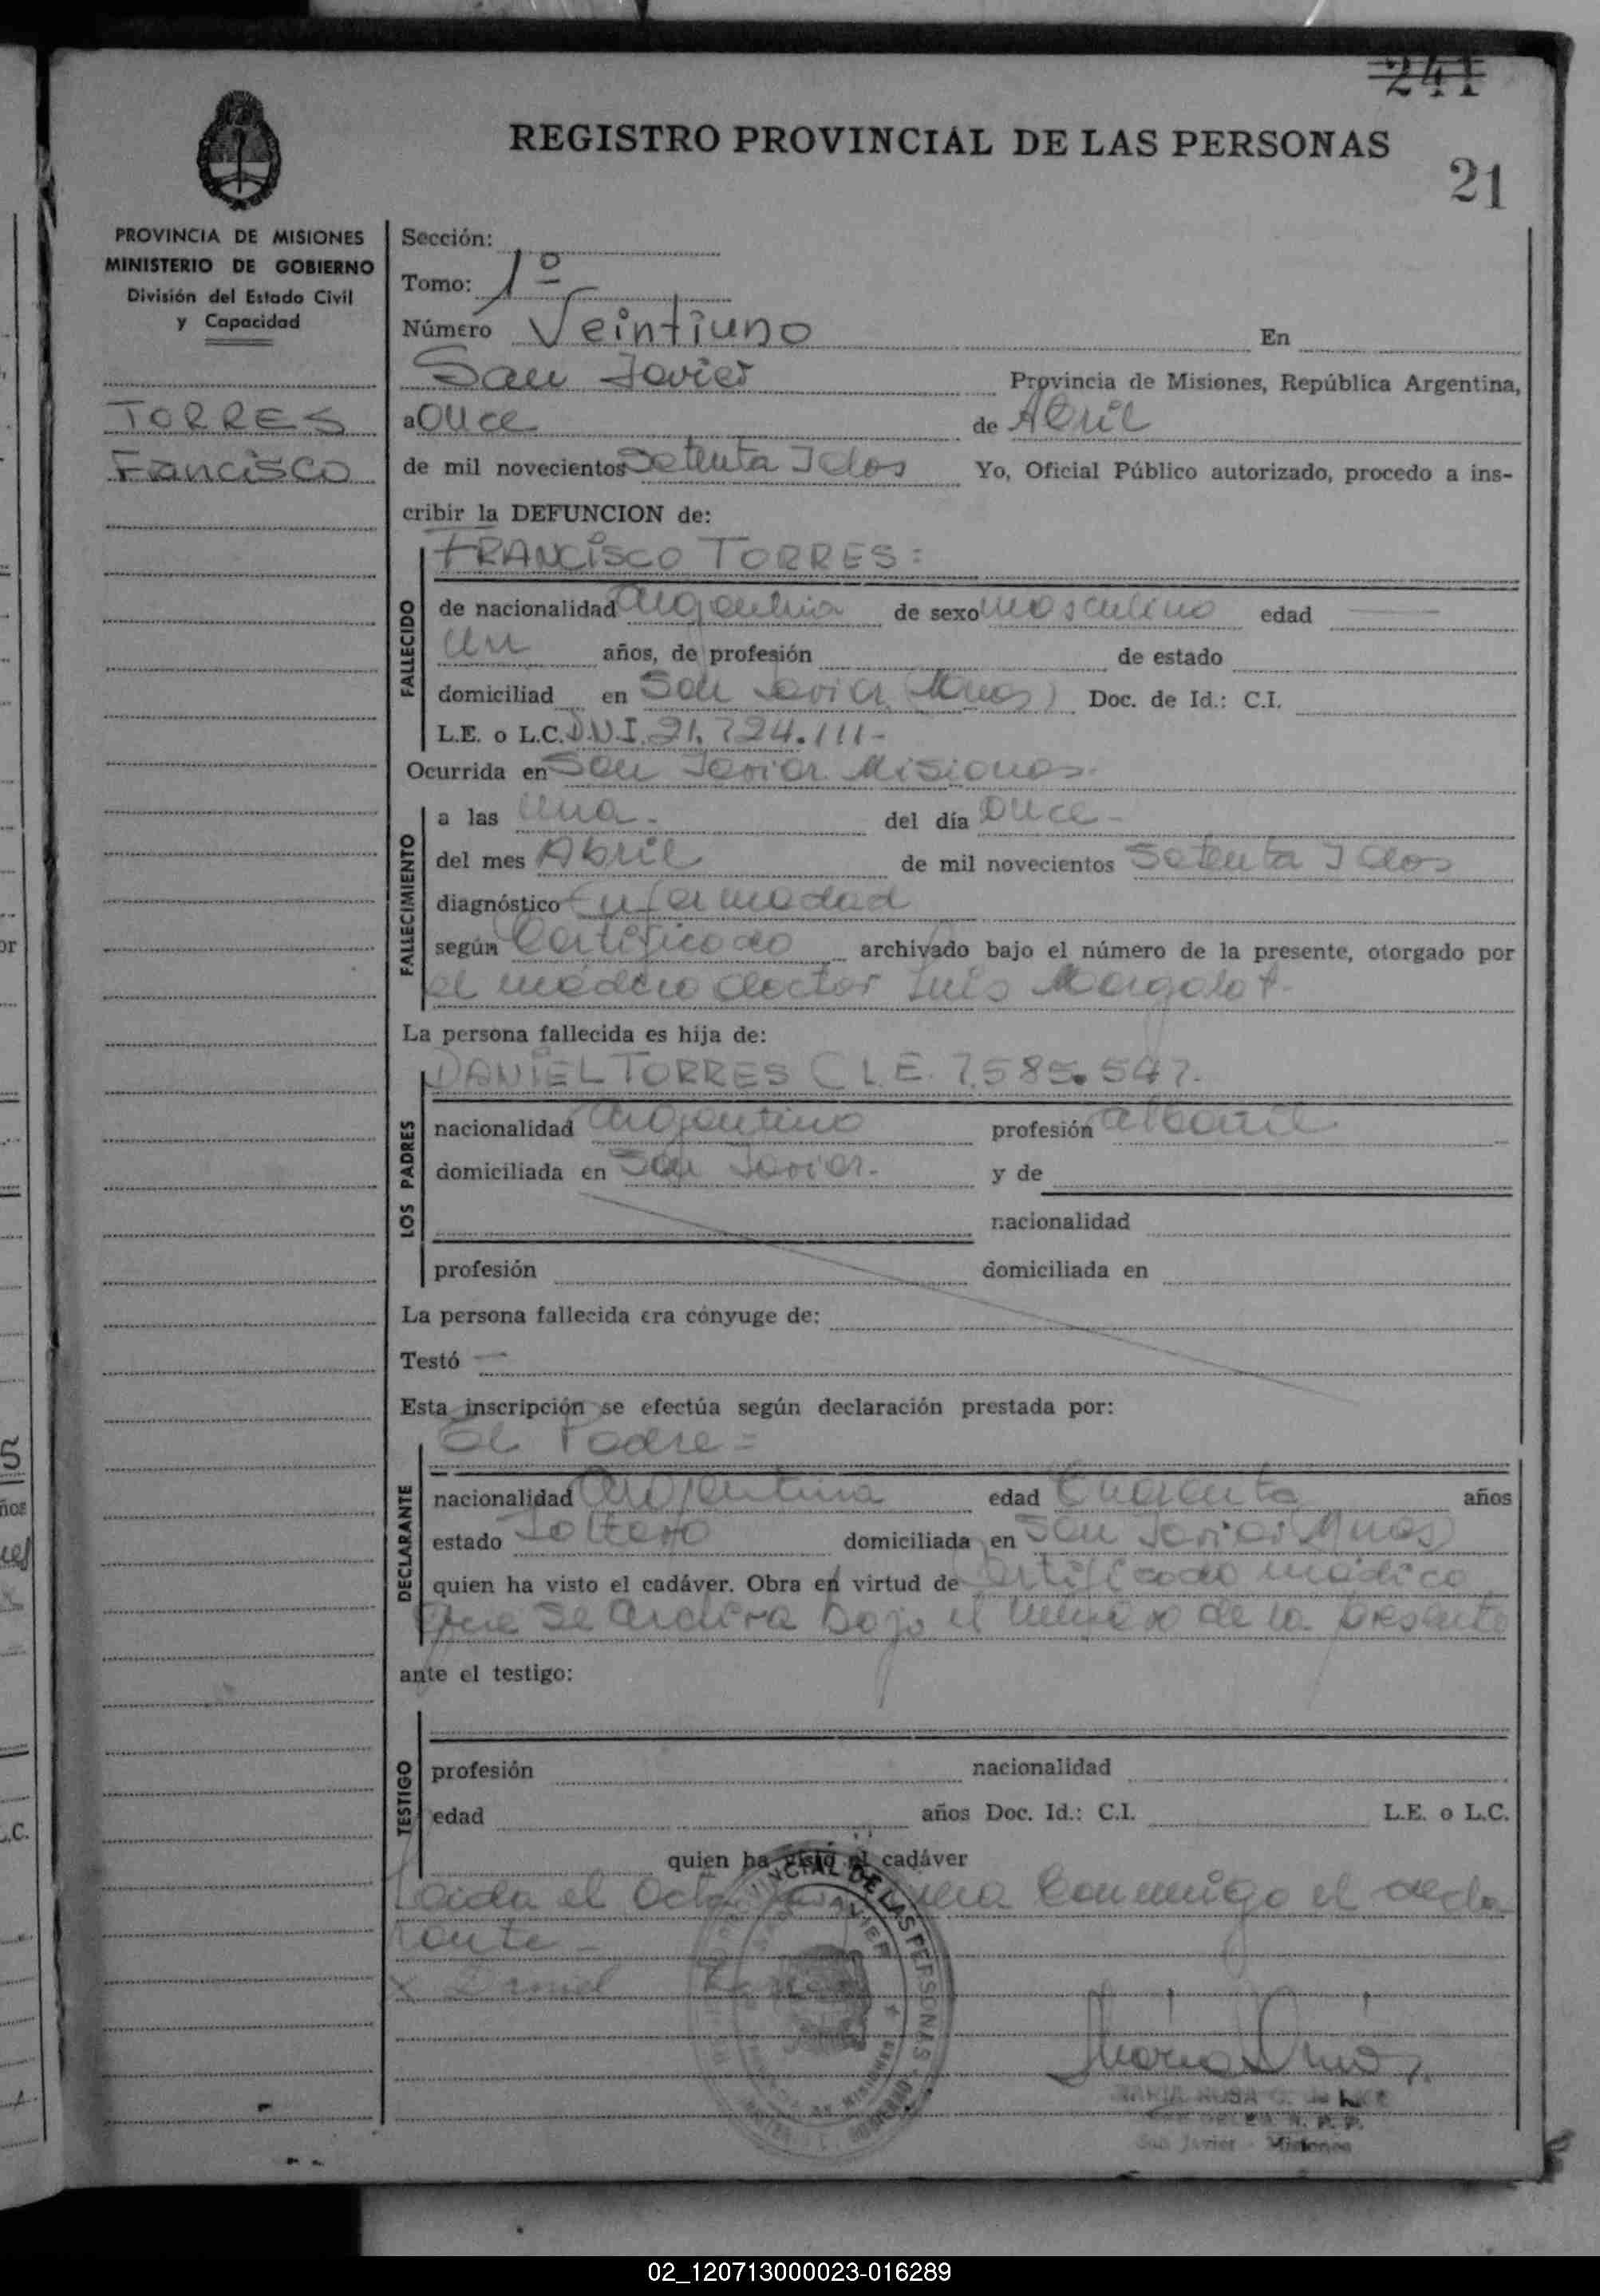 241
REGISTRO PROVINCIAL DE LAS PERSONAS
21
PROVINCIA DE MISIONES
MINISTERIO DE GOBIERNO
División del Estado Civil
y Capacidad
TORRES
Francisco
Sección:
Tomo: 1º
Número Veintiuno En
San Javier Provincia de Misiones, República Argentina,
a Once de Abril
de mil novecientos Setenta I dos Yo, Oficial Público autorizado, procedo a ins-
cribir la DEFUNCION de:
FALLECIDO
FRANCISCO TORRES:
de nacionalidad argentina de sexo masculino edad
un años, de profesión de estado
domiciliad en San Javier (Mnes) Doc. de Id.: C.I.
L.E. o L.C. D.N.I. 21.724.111-
Ocurrida en San Javier Misiones.
FALLECIMIENTO
a las una- del día once-
del mes Abril de mil novecientos Setenta I dos
diagnóstico Enfermedad
según Certificado archivado bajo el número de la presente, otorgado por
el médico doctor Luis
La persona fallecida es hija de:
LOS PADRES
DANIEL TORRES (L.E. 7.585.547.
nacionalidad argentino profesión albañil
domiciliada en San Javier. y de
nacionalidad
profesión domiciliada en
La persona fallecida era cónyuge de:
Testó —
Esta inscripción se efectúa según declaración prestada por:
DECLARANTE
El Padre=
nacionalidad Argentina edad Cuarenta años
estado Soltero domiciliada en San Javier (Mnes)
quien ha visto el cadáver. Obra en virtud de Certificado médico
que se archiva bajo el número de la presente
ante el testigo:
TESTIGO
profesión nacionalidad
edad años Doc. Id.: C.I. L.E. o L.C.
quien ha visto el cadáver
Leida el Acta conmigo el decla
rante-
x Daniel Torres
DE LAS PERSONAS
San Javier - Misiones
02_120713000023-016289